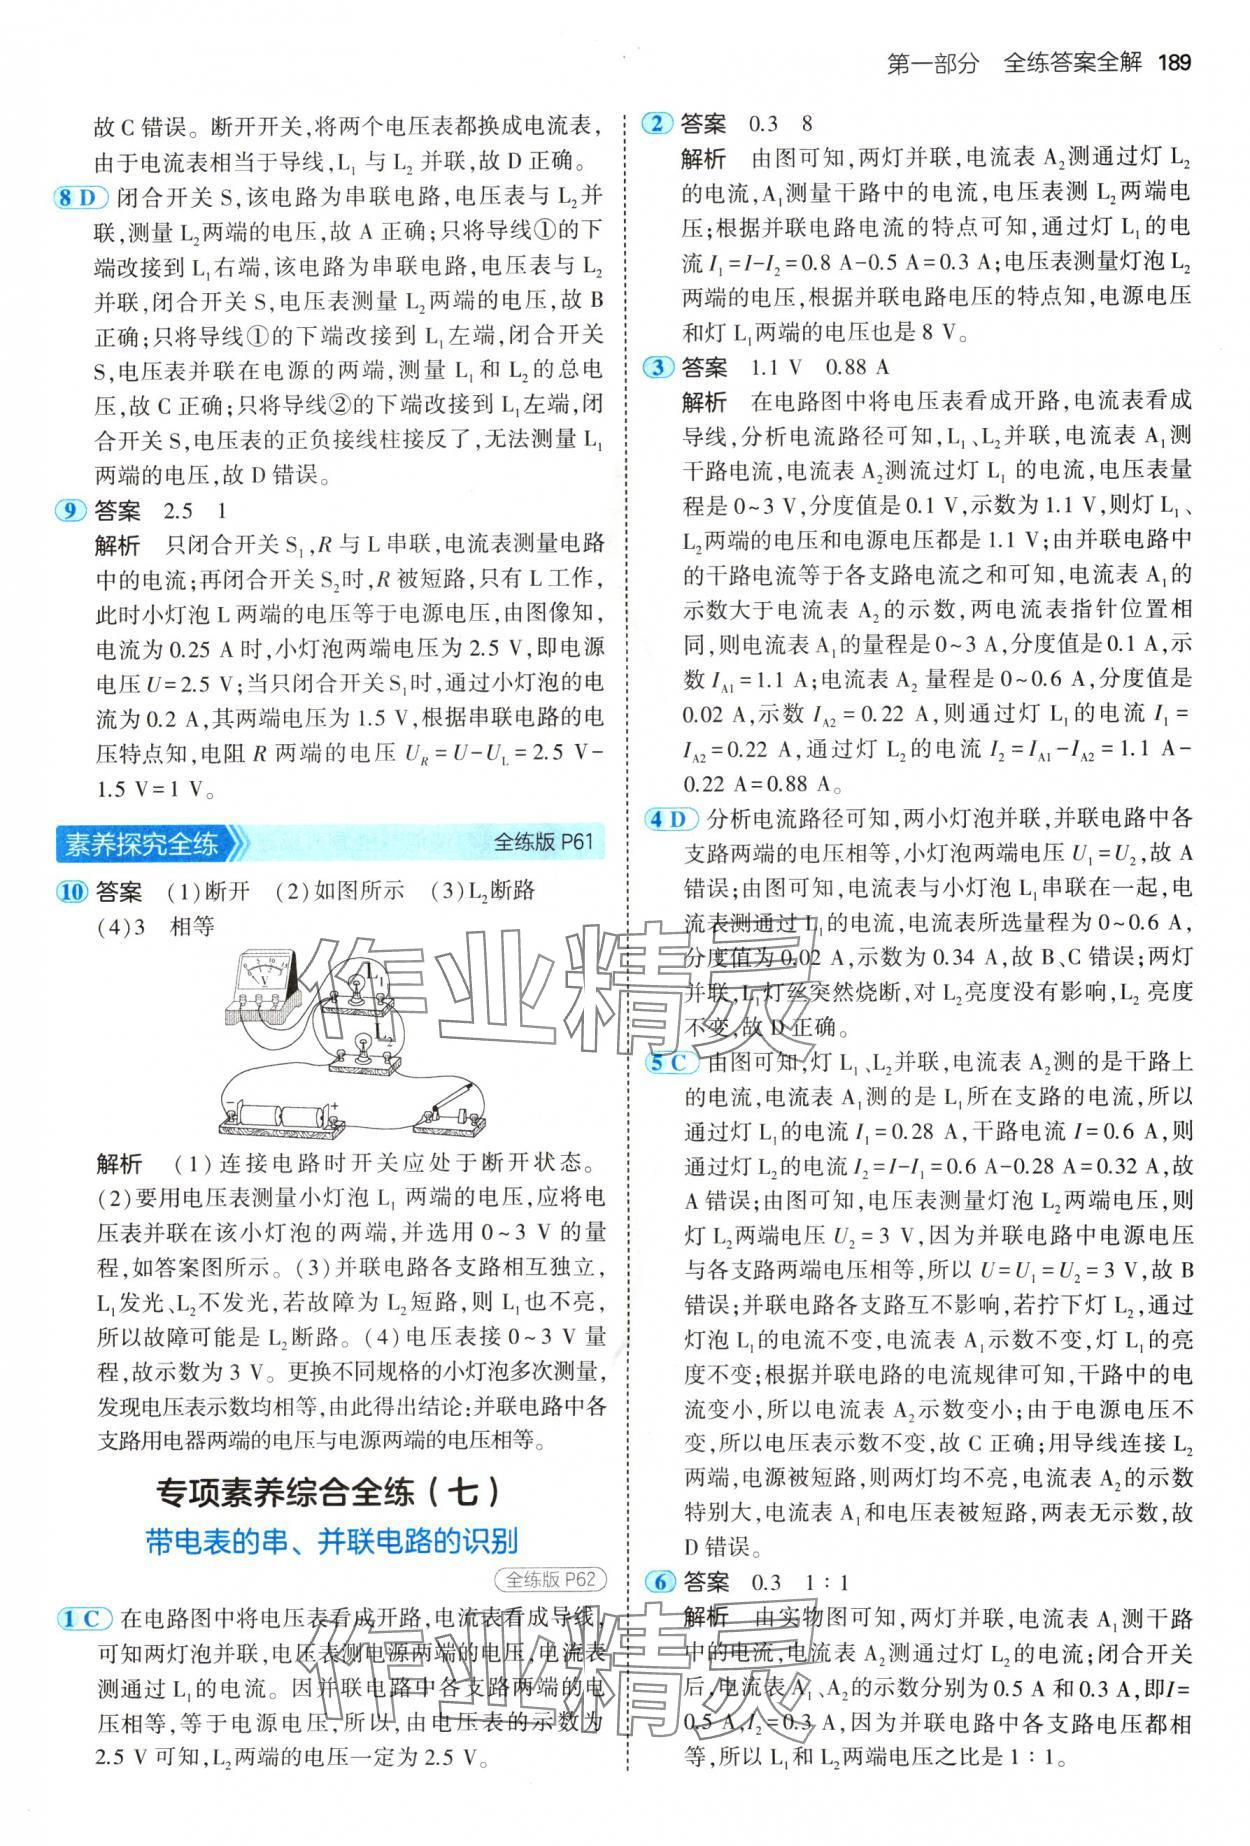 第一部分 全练答案全解 189
故 C 错误。断开开关,将两个电压表都换成电流表,
由于电流表相当于导线,L₁ 与 L₂ 并联,故 D 正确。
8 D 闭合开关 S,该电路为串联电路,电压表与 L₂并
联,测量 L₂两端的电压,故 A 正确;只将导线①的下
端改接到 L₁右端,该电路为串联电路,电压表与 L₂
并联,闭合开关 S,电压表测量 L₂两端的电压,故 B
正确;只将导线①的下端改接到 L₁左端,闭合开关
S,电压表并联在电源的两端,测量 L₁和 L₂的总电
压,故 C 正确;只将导线②的下端改接到 L₁左端,闭
合开关 S,电压表的正负接线柱接反了,无法测量 L₁
两端的电压,故 D 错误。
9 答案 2.5 1
解析 只闭合开关 S₁,R 与 L 串联,电流表测量电路
中的电流;再闭合开关 S₂时,R 被短路,只有 L 工作,
此时小灯泡 L 两端的电压等于电源电压,由图像知,
电流为 0.25 A 时,小灯泡两端电压为 2.5 V,即电源
电压 U=2.5 V;当只闭合开关 S₁时,通过小灯泡的电
流为 0.2 A,其两端电压为 1.5 V,根据串联电路的电
压特点知,电阻 R 两端的电压 U_R=U-U_L=2.5 V-
1.5 V=1 V。
素养探究全练 全练版 P61
10 答案 (1)断开 (2)如图所示 (3)L₂断路
(4)3 相等
0 5 10 15
V
L₁
L₂
- +
解析 (1)连接电路时开关应处于断开状态。
(2)要用电压表测量小灯泡 L₁ 两端的电压,应将电
压表并联在该小灯泡的两端,并选用 0~3 V 的量
程,如答案图所示。(3)并联电路各支路相互独立,
L₁发光、L₂不发光,若故障为 L₂短路,则 L₁也不亮,
所以故障可能是 L₂断路。(4)电压表接 0~3 V 量
程,故示数为 3 V。更换不同规格的小灯泡多次测量,
发现电压表示数均相等,由此得出结论:并联电路中各
支路用电器两端的电压与电源两端的电压相等。
专项素养综合全练(七)
带电表的串、并联电路的识别
全练版 P62
1 C 在电路图中将电压表看成开路,电流表看成导线,
可知两灯泡并联,电压表测电源两端的电压,电流表
测通过 L₁的电流。因并联电路中各支路两端的电
压相等,等于电源电压,所以,由电压表的示数为
2.5 V 可知,L₂两端的电压一定为 2.5 V。
2 答案 0.3 8
解析 由图可知,两灯并联,电流表 A₂测通过灯 L₂
的电流,A₁测量干路中的电流,电压表测 L₂两端电
压;根据并联电路电流的特点可知,通过灯 L₁的电
流 I₁=I-I₂=0.8 A-0.5 A=0.3 A;电压表测量灯泡 L₂
两端的电压,根据并联电路电压的特点知,电源电压
和灯 L₁两端的电压也是 8 V。
3 答案 1.1 V 0.88 A
解析 在电路图中将电压表看成开路,电流表看成
导线,分析电流路径可知,L₁、L₂并联,电流表 A₁测
干路电流,电流表 A₂测流过灯 L₁ 的电流,电压表量
程是 0~3 V,分度值是 0.1 V,示数为 1.1 V,则灯 L₁、
L₂两端的电压和电源电压都是 1.1 V;由并联电路中
的干路电流等于各支路电流之和可知,电流表 A₁的
示数大于电流表 A₂的示数,两电流表指针位置相
同,则电流表 A₁的量程是 0~3 A,分度值是 0.1 A,示
数 I_A1=1.1 A;电流表 A₂ 量程是 0~0.6 A,分度值是
0.02 A,示数 I_A2=0.22 A,则通过灯 L₁的电流 I₁=
I_A2=0.22 A,通过灯 L₂的电流 I₂=I_A1-I_A2=1.1 A-
0.22 A=0.88 A。
4 D 分析电流路径可知,两小灯泡并联,并联电路中各
支路两端的电压相等,小灯泡两端电压 U₁=U₂,故 A
错误;由图可知,电流表与小灯泡 L₁串联在一起,电
流表测通过 L₁的电流,电流表所选量程为 0~0.6 A,
分度值为 0.02 A,示数为 0.34 A,故 B、C 错误;两灯
并联,L₁灯丝突然烧断,对 L₂亮度没有影响,L₂ 亮度
不变,故 D 正确。
5 C 由图可知,灯 L₁、L₂并联,电流表 A₂测的是干路上
的电流,电流表 A₁测的是 L₁所在支路的电流,所以
通过灯 L₁的电流 I₁=0.28 A,干路电流 I=0.6 A,则
通过灯 L₂的电流 I₂=I-I₁=0.6 A-0.28 A=0.32 A,故
A 错误;由图可知,电压表测量灯泡 L₂两端电压,则
灯 L₂两端电压 U₂=3 V,因为并联电路中电源电压
与各支路两端电压相等,所以 U=U₁=U₂=3 V,故 B
错误;并联电路各支路互不影响,若拧下灯 L₂,通过
灯泡 L₁的电流不变,电流表 A₁示数不变,灯 L₁的亮
度不变;根据并联电路的电流规律可知,干路中的电
流变小,所以电流表 A₂示数变小;由于电源电压不
变,所以电压表示数不变,故 C 正确;用导线连接 L₂
两端,电源被短路,则两灯均不亮,电流表 A₂的示数
特别大,电流表 A₁和电压表被短路,两表无示数,故
D 错误。
6 答案 0.3 1∶1
解析 由实物图可知,两灯并联,电流表 A₁测干路
中的电流,电流表 A₂测通过灯 L₂的电流;闭合开关
后,电流表 A₁、A₂的示数分别为 0.5 A 和 0.3 A,即I=
0.5 A,I₂=0.3 A,因为并联电路中各支路电压都相
等,所以 L₁和 L₂两端电压之比是 1∶1。
作业精灵
作业精灵